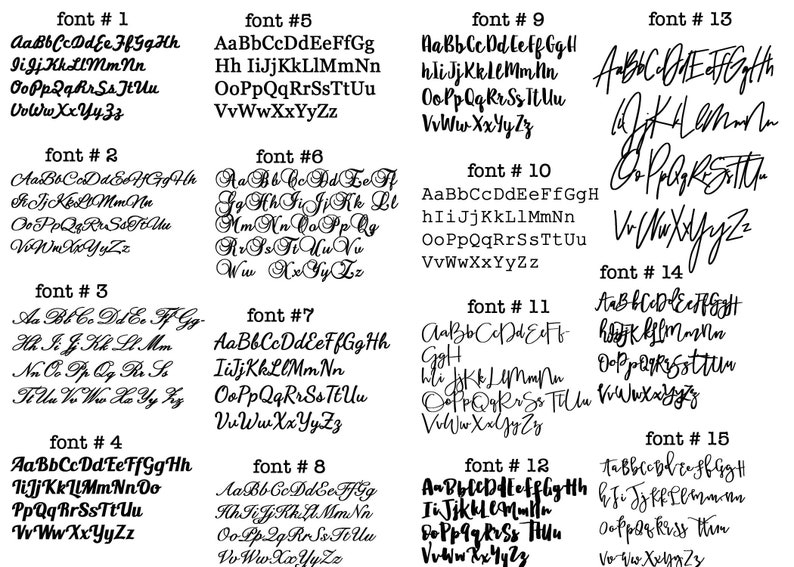 font # 1
AaBbCcDdEeFfGgHh
IiJjKkLlMmNn
OoPpQqRrSsTtUu
VvWwXxYyZz
font # 2
AaBbCcDdEeFfGgHh
IiJjKkLlMmNn
OoPpQqRrSsTtUu
VvWwXxYyZz
font # 3
Aa Bb Cc Dd Ee Ff Gg-
Hh Ii Jj Kk Ll Mm
Nn Oo Pp Qq Rr Ss
Tt Uu Vv Ww Xx Yy Zz
font # 4
AaBbCcDdEeFfGgHh
IiJjKkLlMmNnOo
PpQqRrSsTtUu
VvWwXxYyZz
font #5
AaBbCcDdEeFfGg
Hh IiJjKkLlMmNn
OoPpQqRrSsTtUu
VvWwXxYyZz
font #6
AaBbCcDdEeFf
GgHhIiJjKk Ll
MmNnOoPpQq
RrSsTtUuVv
Ww XxYyZz
font #7
AaBbCcDdEeFfGgHh
IiJjKkLlMmNn
OoPpQqRrSsTtUu
VvWwXxYyZz
font # 8
AaBbCcDdEeFfGg
HhIiJjKkLlMmNn
OoPpQqRrSsTtUu
VvWwXxYyZz
font # 9
AaBbCcDdEeFfGgH
hIiJjKkLlMmNn
OoPpQqRrSsTtUu
VvWwXxYyZz
font # 10
AaBbCcDdEeFfGgH
hIiJjKkLlMmNn
OoPpQqRrSsTtUu
VvWwXxYyZz
font # 11
AaBbCcDdEeFf
GgH
hIi JjKkLlMmNn
OoPpQqRrSsTtUu
VvWwXxYyZz
font # 12
AaBbCcDdEeFfGgHh
IiJjKkLlMmNn
OoPpQqRrSsTtUu
VvWwXxYyZz
font # 13
AaBbCcDdEeFfGgHh
IiJjKkLlMmNn
OoPpQqRrSsTtUu
VvWwXxYyZz
font # 14
AaBbCcDdEeFfGgH
hIiJjKkLlMmNn
OoPpQqRrSsTtUu
VvWwXxYyZz
font # 15
AaBbCcDdEeFfGgH
hIiJjKkLlMmNn
OoPpQqRrSsTtUu
VvWwXxYyZz